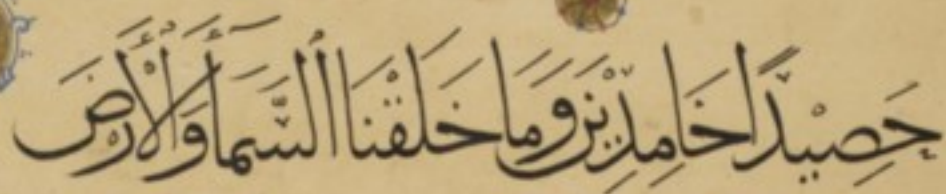 حَصِيْدًا خَامِدِيْنَ وَمَا خَلَقْنَا السَّمَآءَ وَالْأَرْضَ